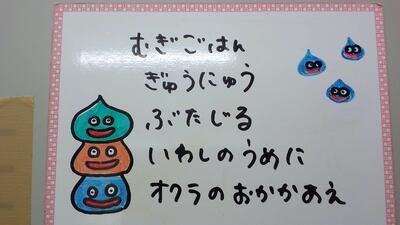 むぎごはん
ぎゅうにゅう
ぶたじる
いわしのうめに
オクラのおかかあえ